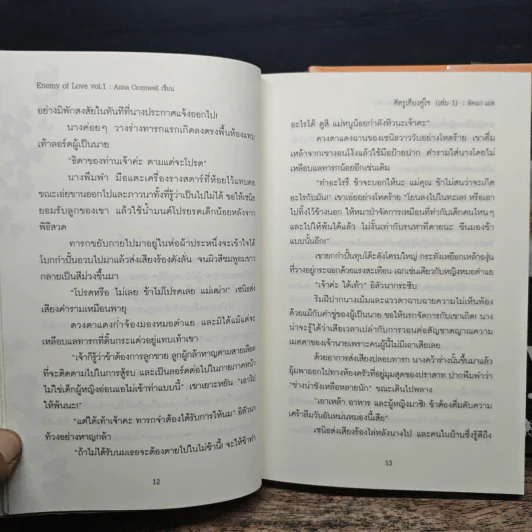 Enemy of Love vol.1 : Anna Cromwell เขียน
อย่างมิพักสงสัยในทันทีที่นางประกาศแจ้งออกไป!
นางค่อยๆ วางร่างทารกแรกเกิดลงตรงพื้นท้องแทบ
เท้าลอร์ดผู้เป็นนาย
"ธิดาของท่านเจ้าค่ะ ตามแต่จะโปรด"
นางพึมพำ มือแตะเครื่องรางสตาร์ที่ห้อยไว้แทบคอ
ขณะเอ่ยขานออกไปและภาวนาทั้งที่รู้ว่าเป็นไปไม่ได้ ขอให้เซนิธ
ยอมรับลูกของเขา แล้วใช้น้ำมนต์โปรยรดเด็กน้อยหลังจาก
พิธีสวด
ทารกขยับกายไปมาอยู่ในห่อผ้าประหนึ่งจะเข้าใจได้
โบกกำปั้นอวบไปมาแล้วส่งเสียงร้องดังลั่น จนผิวสีชมพูอมขาว
กลายเป็นสีม่วงขึ้นมา
"โปรดหรือ ไม่เลย ข้าไม่โปรดเลย แม่เฒ่า!" เซนิธส่ง
เสียงคำรามเหมือนพายุ
ดวงตาแดงก่ำจ้องมองหมอตำแย และมิได้แม้แต่จะ
เหลือบแลทารกที่ดิ้นกระแด่วอยู่แทบเท้าเขา
"เจ้าก็รู้ว่าข้าต้องการลูกชาย ลูกผู้กล้าหาญตามสายเลือด
ที่จะติดตามไปในการสู้รบ และเป็นลอร์ดต่อไปในกายภาคหน้า
ไม่ใช่เด็กผู้หญิงอ่อนแอไม่เข้าท่าแบบนี้" เขาเยาะหยัน "เอาไป
ให้พ้นนะ!"
"แต่ได้เท้าเจ้าคะ ทารกจำต้องได้รับการให้นม" อิดิวนา
ท้วงอย่างหาญกล้า
"ถ้าไม่ได้รับนมเธอจะต้องตายไปในไม่ช้านี้! จะให้ข้าทำ
12
ศัตรูเคียงคู่ใจ (เล่ม 1) :
อะไรได้ ดูสิ แม่หนูน้อยกำลังหิวนะเจ้าคะ"
ดวงตาแดงฉานของเซนิธวาววับอย่างโหดร้าย เขาดื่ม
เหล้าจากเขางอนโง้งแล้วใช้มือป้ายปาก คำรามใส่นางโดยไม่
เหลือบแลทารกน้อยอีกเช่นเดิม
"ทำอะไรรึ ข้าจะบอกให้นะ แม่คุณ! ข้าไม่สนว่าจะเกิด
อะไรกับมัน!" เขาเอ่ยอย่างโหดร้าย "โยนลงไปในทะเล! หรือเอา
ไปทิ้งไว้ข้างนอก ให้หมาป่าจัดการเหมือนที่ทำกับเด็กคนไหนๆ
และไปให้พ้นได้แล้ว ไม่งั้นเท่ากับรนหาที่ตายน่ะ ขืนมองข้า
แบบนั้นอีก!"
เขายกกำปั้นทุบโต๊ะดังโครมใหญ่ กระทั่งเหยือกเหล้าองุ่น
ที่วางอยู่กระฉอกด้วยแรงสะเทือน เฉกเช่นเดียวกับหญิงหมอตำแย
"เจ้าค่ะ ได้เท้า" อิดิวนากระซิบ
ริมฝีปากนางเม้มและแววตาฉานฉายความไม่เห็นพ้อง
ด้วยแม้กับคำขู่ของผู้เป็นนาย ขอให้นรกจัดการกับเขาเถิด! นาง
น่าจะรู้ได้ว่าเสียเวลาเปล่ากับการวอนต่อสัญชาตญาณความ
เมตตาของเจ้านายเพราะคนผู้นี้ไม่มีเอาเสียเลย
ด้วยอาการส่งเสียงปลอบทารก นางคว้าร่างนั้นขึ้นมาแล้ว
อุ้มพาออกไปทางห้องครัวที่อยู่มุมสุดของปราสาท ปากพึมพำว่า
"ช่างน่าชังเหลือหลายนัก" ขณะเดินไปพลาง
"เอาเหล้า อาหาร และผู้หญิงมาซิ! ข้าต้องดื่มดับความ
เศร้าลืมวันอันหม่นหมองนี้เสีย"
เซนิธส่งเสียงร้องไล่หลังนางไป และคนในบ้านซึ่งรู้ดีถึง
13